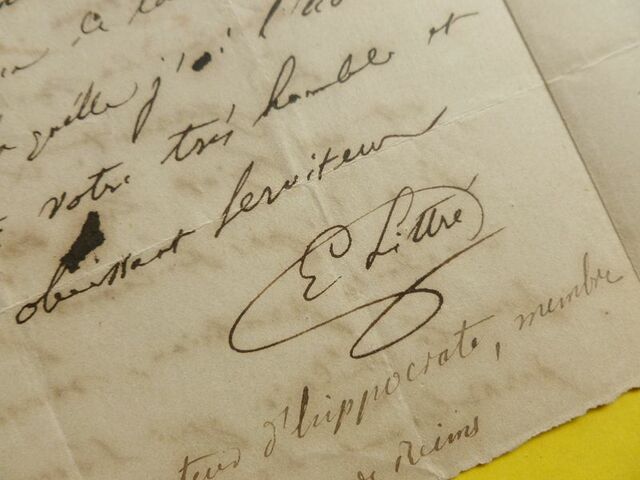 à la
laquelle j'ai l'ho
votre très humble et
obeissant serviteur
E Littré
teur d'hippocrate, membre
de Reims